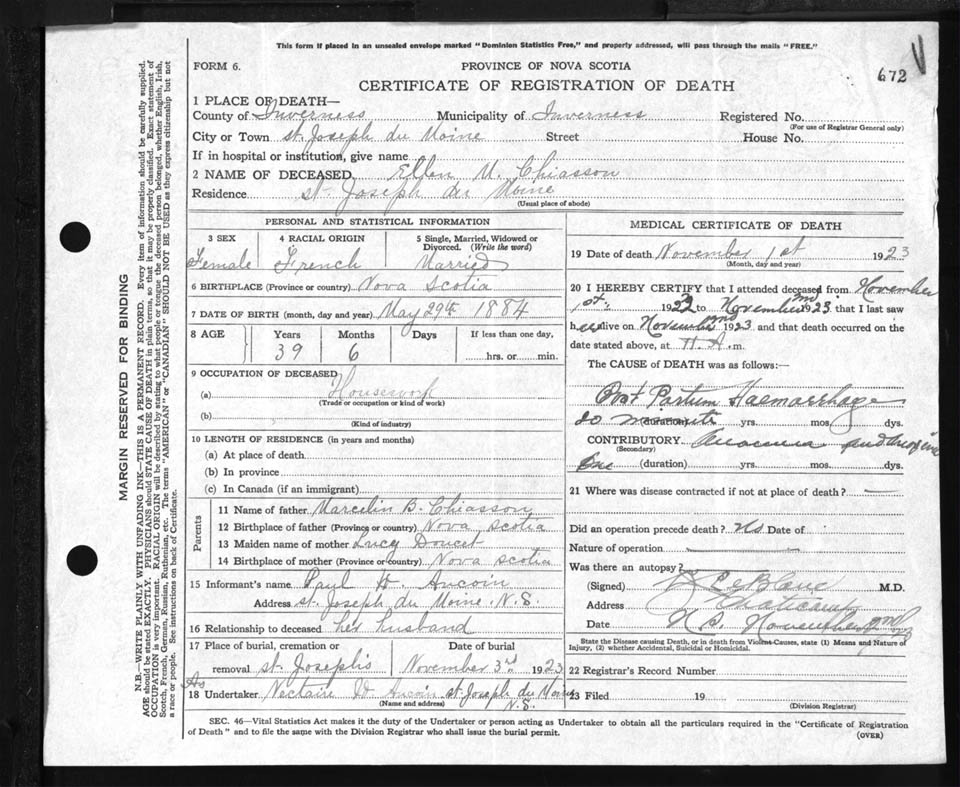 This form if placed in an unsealed envelope marked "Dominion Statistics Free," and properly addressed, will pass through the mails "FREE."
FORM 6.
PROVINCE OF NOVA SCOTIA
672
CERTIFICATE OF REGISTRATION OF DEATH
1 PLACE OF DEATH—
County of Inverness Municipality of Inverness Registered No.
(For use of Registrar General only)
City or Town St. Joseph du Moine Street House No.
If in hospital or institution, give name
2 NAME OF DECEASED Ellen M. Chiasson
Residence St. Joseph du Moine
(Usual place of abode)
PERSONAL AND STATISTICAL INFORMATION
3 SEX
Female
4 RACIAL ORIGIN
French
5 Single, Married, Widowed or Divorced. (Write the word)
Married
6 BIRTHPLACE (Province or country) Nova Scotia
7 DATE OF BIRTH (month, day and year) May 29th 1884
8 AGE Years Months Days If less than one day,
39 6 hrs. or min.
9 OCCUPATION OF DECEASED
(a) Housework
(Trade or occupation or kind of work)
(b)
(Kind of industry)
10 LENGTH OF RESIDENCE (in years and months)
(a) At place of death
(b) In province
(c) In Canada (if an immigrant)
Parents
11 Name of father Marcelin B. Chiasson
12 Birthplace of father (Province or country) Nova Scotia
13 Maiden name of mother Lucy Doucet
14 Birthplace of mother (Province or country) Nova Scotia
15 Informant's name Paul H. Aucoin
Address St. Joseph du Moine. N.S.
16 Relationship to deceased her husband
17 Place of burial, cremation or removal St. Joseph's
Date of burial
November 3rd 1923
18 Undertaker Nectaire Aucoin St. Joseph du Moine
(Name and address) N.S.
MEDICAL CERTIFICATE OF DEATH
19 Date of death November 1st 1923
(Month, day and year)
20 I HEREBY CERTIFY that I attended deceased from November
1st 1923 to November 1923 that I last saw
h alive on November 1923 and that death occurred on
date stated above, at A.m.
The CAUSE of DEATH was as follows:—
Post Partum Haemorrhage
20 (duration) yrs. mos. dys.
CONTRIBUTORY
(Secondary)
(duration) yrs. mos. dys.
21 Where was disease contracted if not at place of death? —
Did an operation precede death? No Date of
Nature of operation
Was there an autopsy?
(Signed) LeBlanc M.D.
Address
Date N.S. November 2nd 23
State the Disease causing Death, or in death from Violent Causes, state (1) Means and Nature of Injury, (2) whether Accidental, Suicidal or Homicidal.
22 Registrar's Record Number
23 Filed 19
(Division Registrar)
SEC. 46—Vital Statistics Act makes it the duty of the Undertaker or person acting as Undertaker to obtain all the particulars required in the "Certificate of Registration
of Death" and to file the same with the Division Registrar who shall issue the burial permit.
(OVER)
MARGIN RESERVED FOR BINDING
N.B.—WRITE PLAINLY WITH UNFADING INK—THIS IS A PERMANENT RECORD. Every item of information should be carefully supplied.
AGE should be stated EXACTLY. PHYSICIANS should STATE CAUSE OF DEATH in plain terms, so that it may be properly classified. Exact statement of
OCCUPATION is very important. RACIAL ORIGIN will be described by stating to what people or tongue the deceased person belonged, whether English, Irish,
Scotch, French, German, Russian, Ruthenian, etc. The terms "AMERICAN" or "CANADIAN" SHOULD NOT BE USED as they express citizenship but not
a race or people. See instructions on back of Certificate.